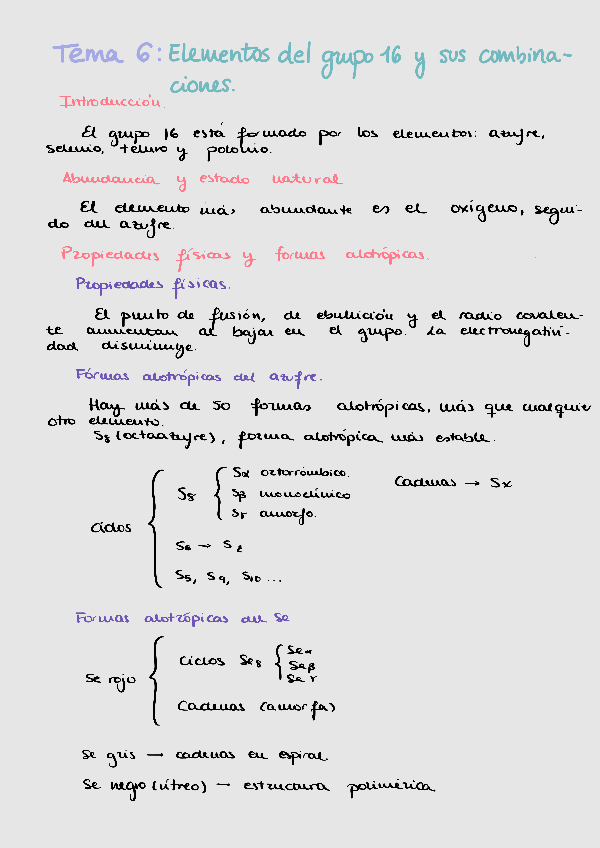 Tema 6: Elementos del grupo 16 y sus combina-
ciones.
Introducción.
El grupo 16 está formado por los elementos: azufre,
selenio, teluro y polonio.
Abundancia y estado natural
El elemento más abundante es el oxígeno, segui-
do del azufre.
Propiedades físicas y formas alotrópicas.
Propiedades físicas.
El punto de fusión, de ebullición y el radio covalen-
te aumentan al bajar en el grupo. La electronegativi-
dad disminuye.
Fórmas alotrópicas del azufre.
Hay más de 50 formas alotrópicas, más que cualquier
otro elemento.
S8 (octaazufre), forma alotrópica más estable.
Ciclos
S8
Sα ortorrómbico.
Sβ monoclínico
Sγ amorfo.
Cadenas → Sx
S6 →
S5, S9, S10 ...
Formas alotrópicas del Se
Se rojo
Ciclos Se8
Seα
Seβ
Seγ
Cadenas (amorfa)
Se gris → cadenas en espiral
Se negro (vítreo) → estructura polimérica